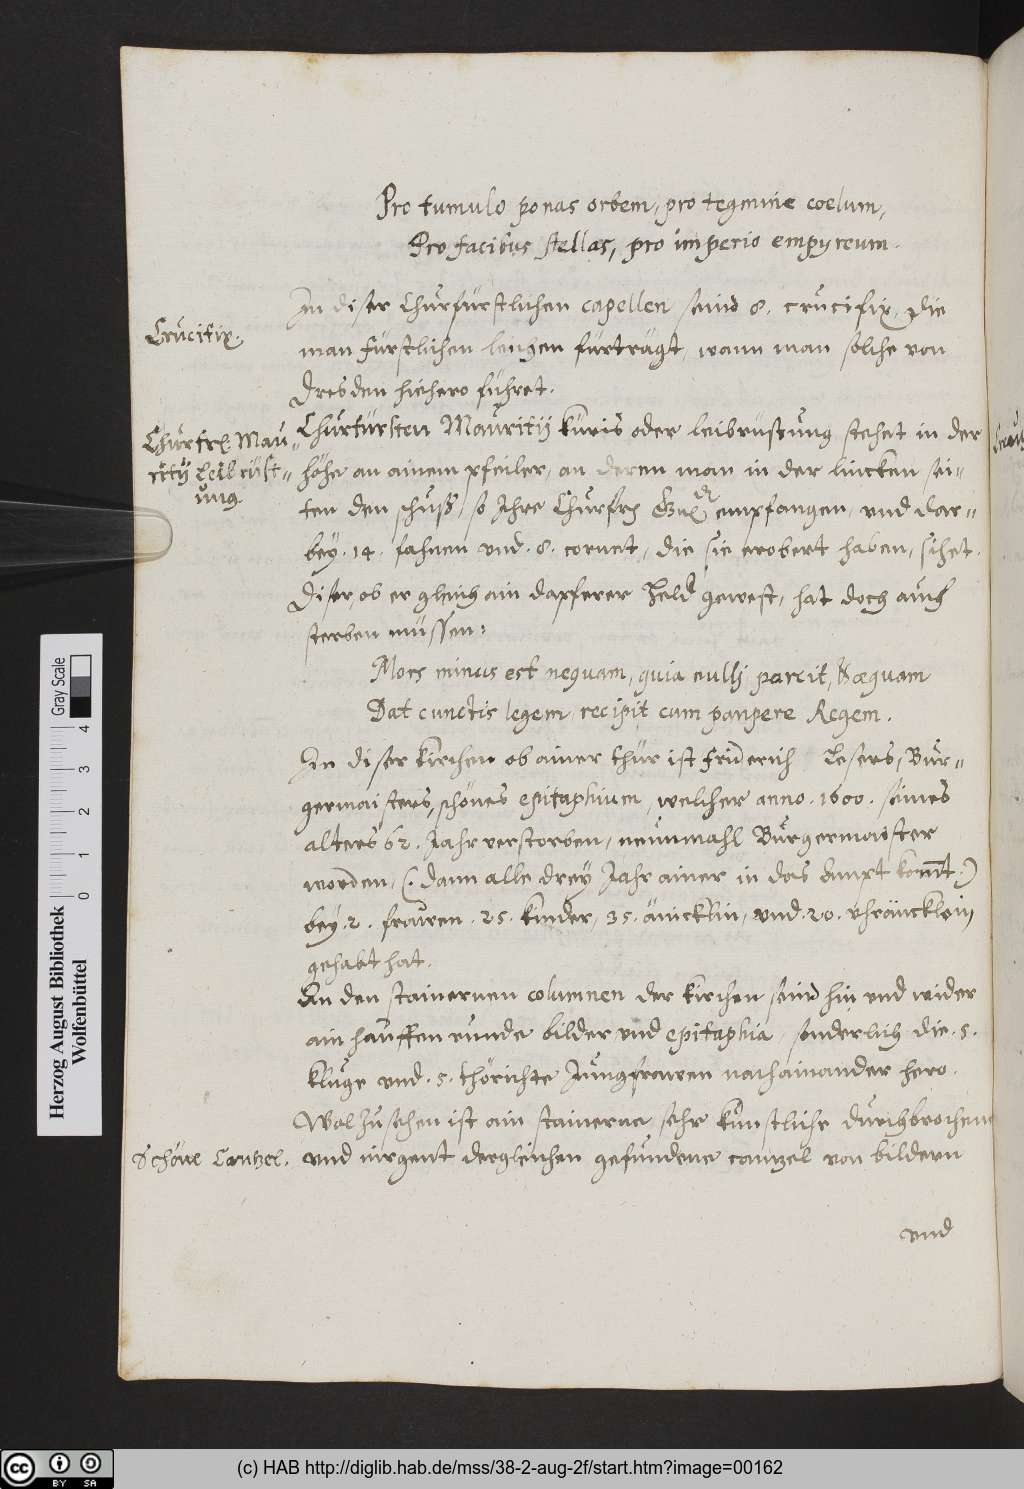 Pro tumulo ponas orbem, pro tegmine coelum,
Pro facibus stellas, pro imperio empyreum.
In diser Churfürstlichen capellen seind 8. crucifix, die
Crucifix.
man fürstlichen leichen fürträgt, wann man solche von
Dresden hiehero führet.
Churfürsten Mauritij küris oder leibrüstung stehet in der
Churfrl. Mau-
ritij Leibrüst-
ung.
höhe an ainem pfeiler, an deren man in der lincken sei-
ten den schuß, so Ihre Churfrl empfangen, und dar-
bey. 14. fahnen und. 8. cornet, die sie erobert haben, sihet.
Diser, ob er gleich ain dapferer Held gewest, hat doch auch
sterben müssen:
Mors minus est nequam, quia nulli parcit, & aequam
Dat cunctis legem, recipit cum paupere Regem.
In diser kirchen ob ainer thür ist Friderich Lesers, Bur-
germaisters, schönes epitaphium, welcher anno. 1600. seines
alters 62. Jahr verstorben, neunmahl Burgermaister
worden, (. dann alle drey Jahr ainer in das Ampt komt.)
bey. 2. frawen. 25. kinder, 35. änicklin, und. 20. uhräncklein,
gehabt hat.
An den stainernen columnen der kirchen seind hin und wider
ain hauffen runde bilder und epitaphia, sonderlich die. 5.
kluge und. 5. thörichte Jungfrawen nachainander hero.
Wol zu sehen ist ain stainerne sehr kunstliche durchbrochene
Schöne Cantzel.
und nirgent dergleichen gefundene cantzel von bildern
und
Herzog August Bibliothek
Wolfenbüttel
0 1 2 3 4
Gray Scale
cc BY SA
(c) HAB http://diglib.hab.de/mss/38-2-aug-2f/start.htm?image=00162